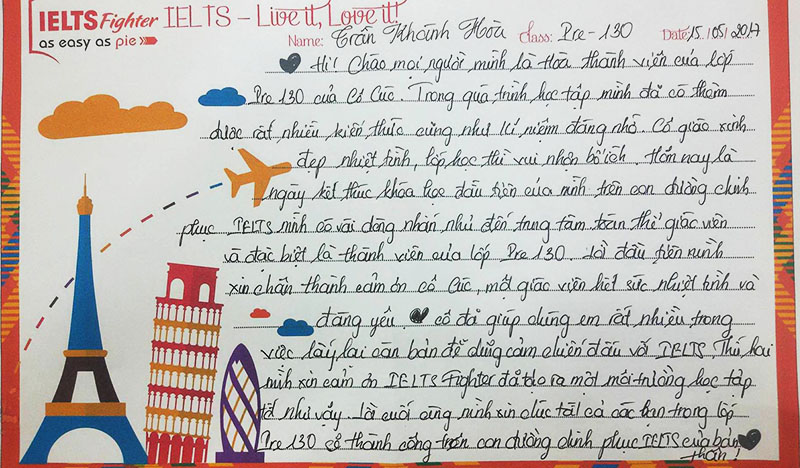 IELTS Fighter IELTS – Live it, Love it!
as easy as pie
Name: Trần Khánh Hoà Class: Pre - 130 Date: 15/05/2017
Hi! Chào mọi người mình là Hoà thành viên của lớp
Pre 130 của Cô Cúc. Trong quá trình học tập mình đã có thêm
được rất nhiều kiến thức cũng như kỉ niệm đáng nhớ. Cô giáo xinh
đẹp nhiệt tình, lớp học thì vui nhộn bổ ích. Hôm nay là
ngày kết thúc khóa học đầu tiên của mình trên con đường chinh
phục IELTS mình có vài dòng nhắn nhủ đến trung tâm, toàn thể giáo viên
và đặc biệt là thành viên của lớp Pre 130. Lời đầu tiên mình
xin chân thành cảm ơn cô Cúc, một giáo viên hết sức nhiệt tình và
đáng yêu. cô đã giúp chúng em rất nhiều trong
việc lấy lại căn bản để dũng cảm chiến đấu với IELTS. Thứ hai
mình xin cảm ơn IELTS Fighter đã tạo ra một môi trường học tập
tốt như vậy. Lời cuối cùng mình xin chúc tất cả các bạn trong lớp
Pre 130 sẽ thành công trên con đường chinh phục IELTS của bản
thân!